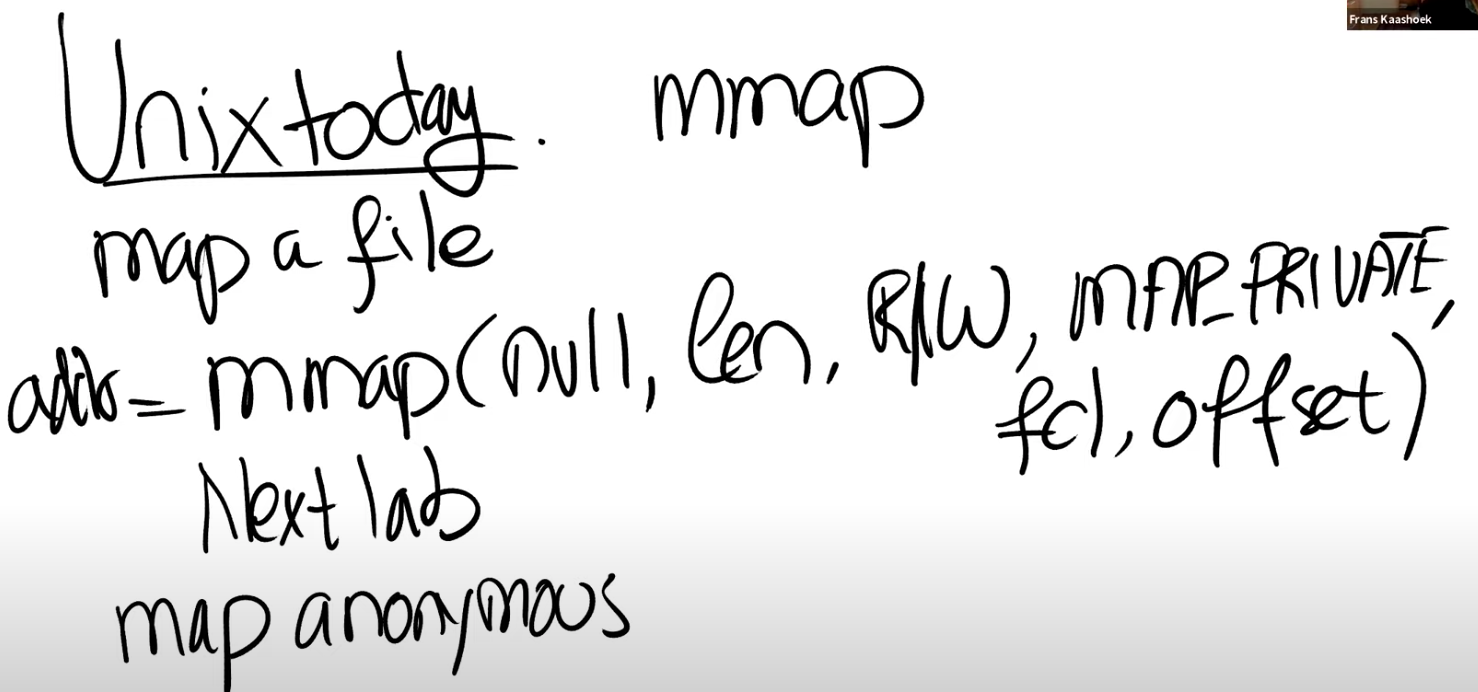 Frans Kaashoek
Unix today. mmap
map a file
addr = mmap(null, len, R/W, MAP_PRIVATE,
fd, offset)
Next lab
map anonymous